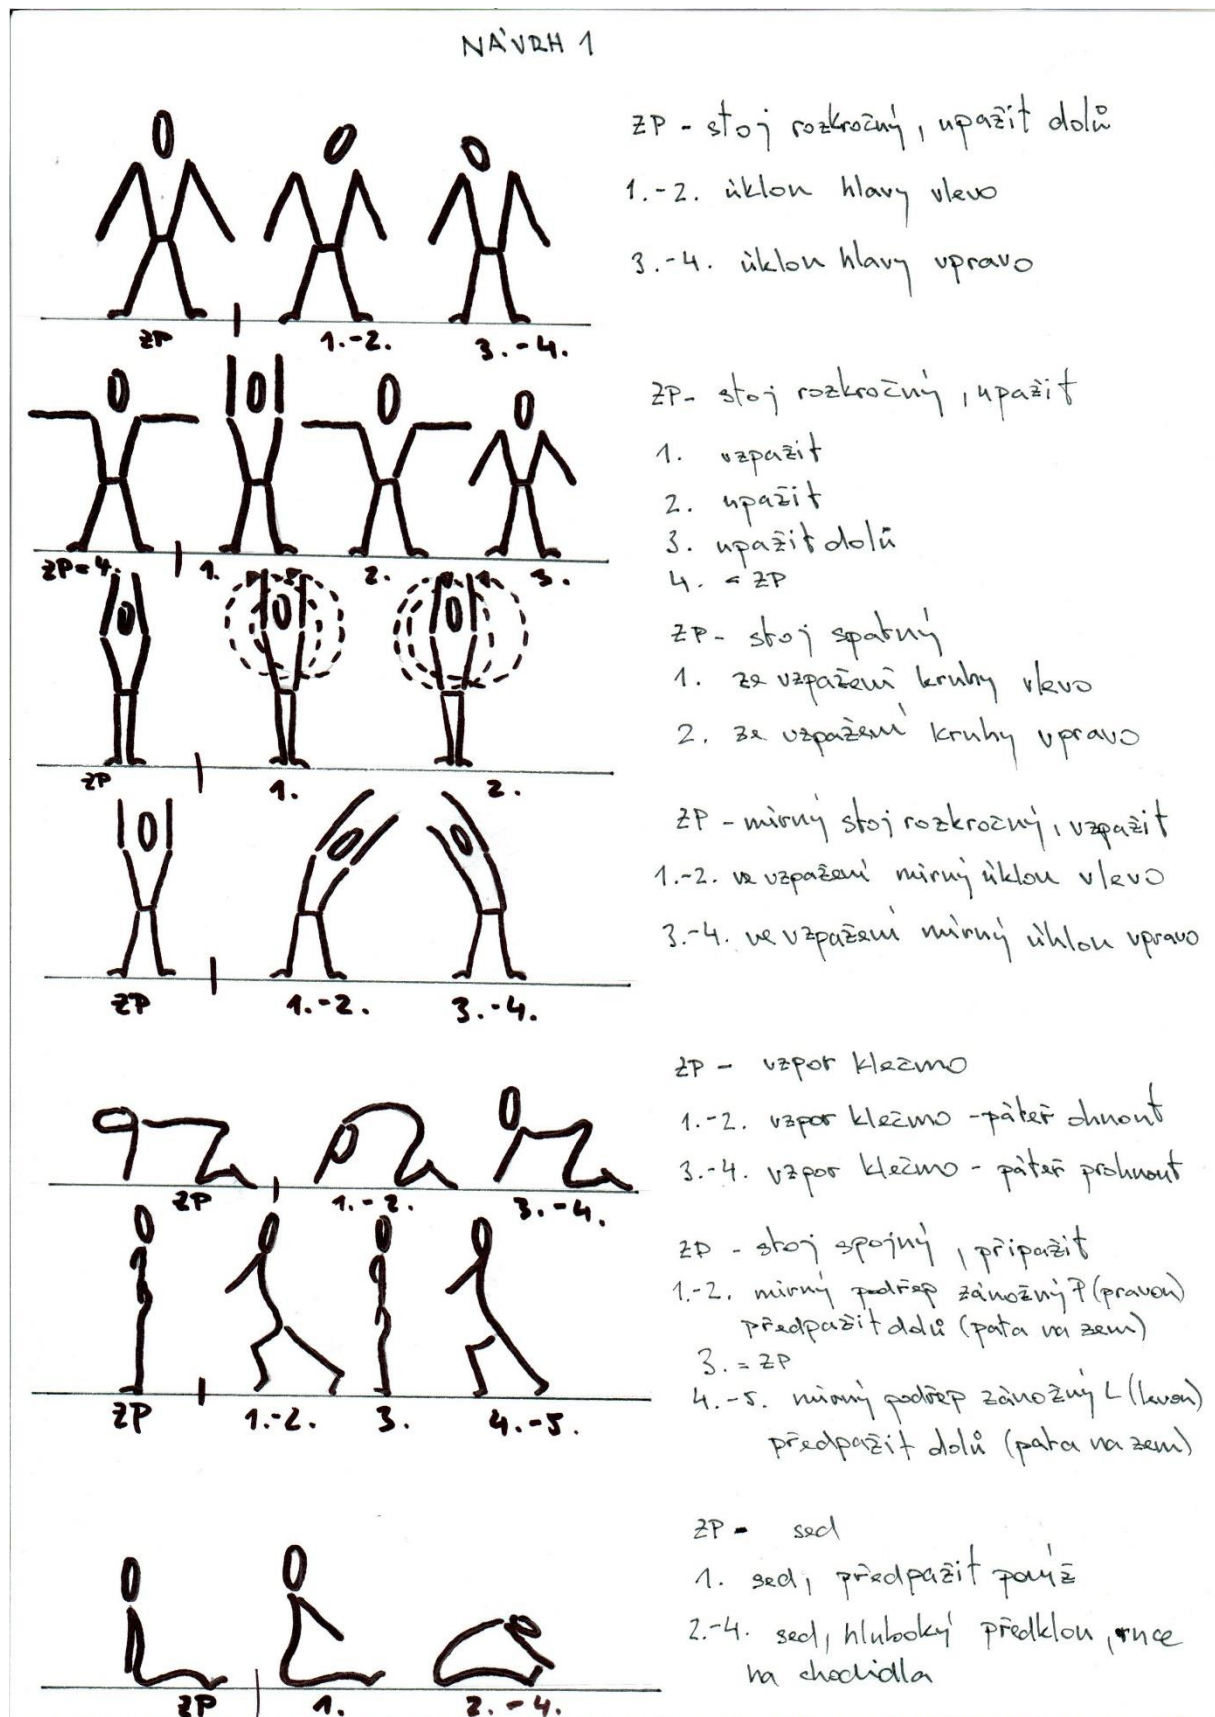 NÁVRH 1
ZP - stoj rozkročný, upažit dolů
1.-2. úklon hlavy vlevo
3.-4. úklon hlavy vpravo
ZP 1.-2. 3.-4.
ZP - stoj rozkročný, upažit
1. vzpažit
2. upažit
3. upažit dolů
4. = ZP
ZP=4. 1. 2. 3.
ZP - stoj spatný
1. ze vzpažení kruhy vlevo
2. ze vzpažení kruhy vpravo
ZP 1. 2.
ZP - mírný stoj rozkročný, vzpažit
1.-2. ve vzpažení mírný úklon vlevo
3.-4. ve vzpažení mírný úklon vpravo
ZP 1.-2. 3.-4.
ZP - vzpor klečmo
1.-2. vzpor klečmo - páteř ohnout
3.-4. vzpor klečmo - páteř prohnout
ZP 1.-2. 3.-4.
ZP - stoj spojný, připažit
1.-2. mírný podřep zánožný P (pravou)
předpažit dolů (pata na zem)
3. = ZP
4.-5. mírný podřep zánožný L (levou)
předpažit dolů (pata na zem)
ZP 1.-2. 3. 4.-5.
ZP - sed
1. sed, předpažit poníž
2.-4. sed, hluboký předklon, ruce
na chodidla
ZP 1. 2.-4.